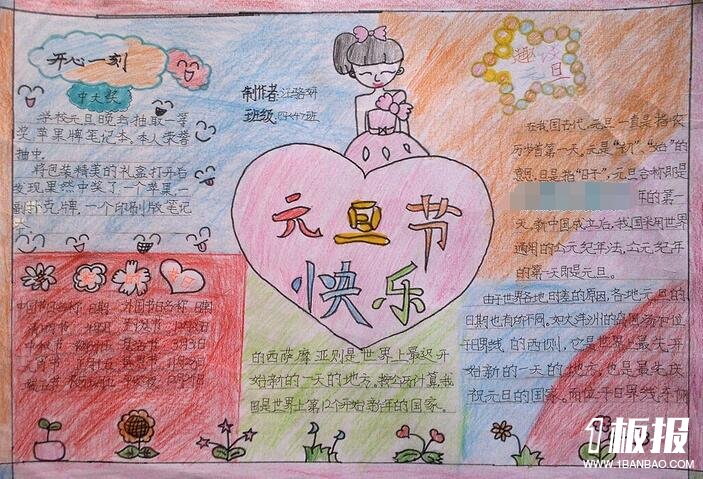 开心一刻
中大奖
学校元旦晚会抽取一等
奖苹果牌笔记本,本人荣誉
抽中。
将包装精美的礼盒打开后
发现果然中奖了一个苹果,一
副扑克牌,一个印刷版笔记
本。
中国节日名称 日期 外国节日名称 日期
制作者:
班级:
元旦节
快乐
趣谈
元旦
在我国古代,元旦一直是指农
历岁首第一天。元是“初”、“始”的
意思,旦是指“日子”,元旦合称即是
年的第一
天。新中国成立后,我国采用世界
通用的公元纪年法,公元纪年
的第一天即是元旦。
由于世界各地时差的原因,各地元旦的
日期也有所不同。如大洋洲的岛国汤加位
于日界线的西侧,它是世界上最先开
始新的一天的地方,也是最先庆
祝元旦的国家。而位于日界线东侧
的西萨摩亚则是世界上最迟开
始新的一天的地方。按公历计算,我
国是世界上第12个开始新年的国家。
1板报
WWW.1BANBAO.COM